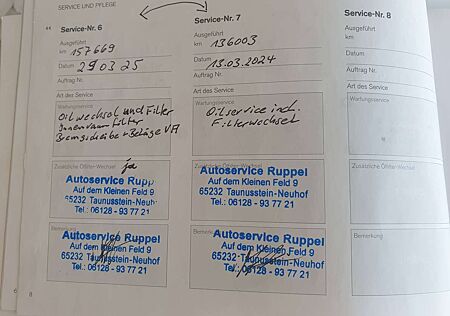 SERVICE UND PFLEGE
Service-Nr. 6
Ausgeführt
km 157669
Datum 29.03.25
Auftrag Nr.
Art des Service
Wartungsservice
Ölwechsel und Filter
Innenraumfilter
Bremsscheibe + Beläge VA
Zusätzliche Ölfilter-Wechsel ja
Autoservice Ruppel
Auf dem Kleinen Feld 9
65232 Taunusstein-Neuhof
Tel.: 06128 - 93 77 21
Bemerkung
Autoservice Ruppel
Auf dem Kleinen Feld 9
65232 Taunusstein-Neuhof
Tel.: 06128 - 93 77 21
8
Service-Nr. 7
Ausgeführt
km 136003
Datum 13.03.2024
Auftrag Nr.
Art des Service
Wartungsservice
Ölservice incl.
Filterwechsel
Zusätzliche Ölfilter-Wechsel
Autoservice Ruppel
Auf dem Kleinen Feld 9
65232 Taunusstein-Neuhof
Tel.: 06128 - 93 77 21
Autoservice Ruppel
Auf dem Kleinen Feld 9
65232 Taunusstein-Neuhof
Tel.: 06128 - 93 77 21
Service-Nr. 8
Ausgeführt
km
Datum
Auftrag Nr.
Art des Service
Wartungsservice
Zusätzliche Ölfilter-Wechsel
Bemerkung
6